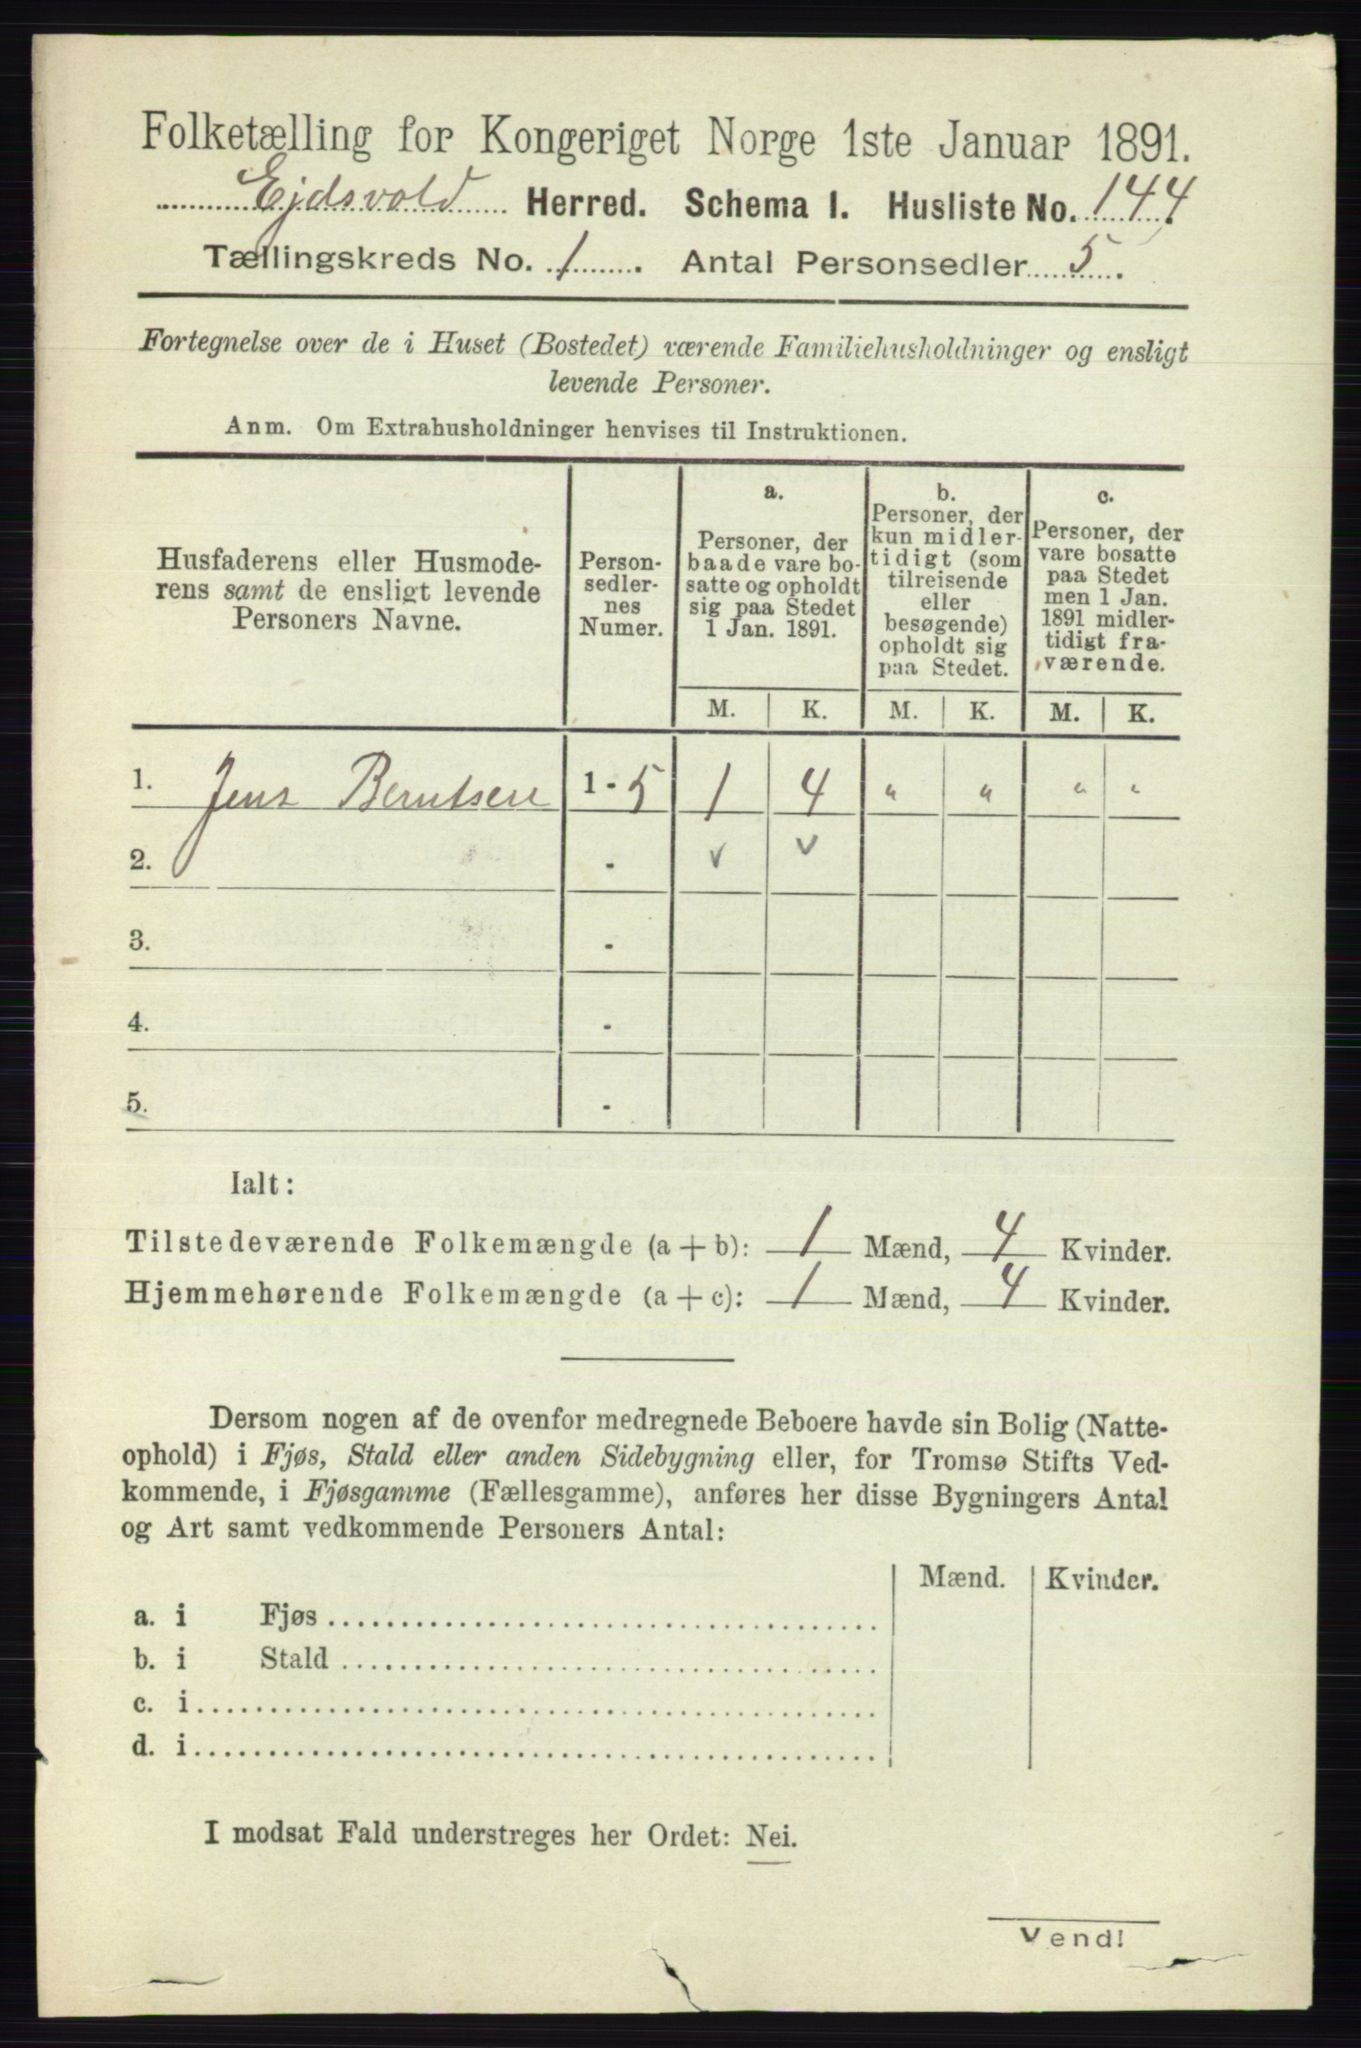 Folketælling for Kongeriget Norge 1ste Januar 1891.
Ejdsvold Herred. Schema I. Husliste No. 144.
Tællingskreds No. 1. Antal Personsedler 5.
Fortegnelse over de i Huset (Bostedet) værende Familiehusholdninger og ensligt
levende Personer.
Anm. Om Extrahusholdninger henvises til Instruktionen.
Husfaderens eller Husmode-
rens samt de ensligt levende
Personers Navne.
Person-
sedler-
nes
Numer.
a.
Personer, der
baade vare bo-
satte og opholdt
sig paa Stedet
1 Jan. 1891.
b.
Personer, der
kun midler-
tidigt (som
tilreisende
eller
besøgende)
opholdt sig
paa Stedet.
c.
Personer, der
vare bosatte
paa Stedet
men 1 Jan.
1891 midler-
tidigt fra-
værende.
M. K. M. K. M. K.
1. Jens Berntsen 1 - 5 1 4 " " " "
2. - v v
3. -
4. -
5. -
Ialt:
Tilstedeværende Folkemængde (a + b): 1 Mænd, 4 Kvinder.
Hjemmehørende Folkemængde (a + c): 1 Mænd, 4 Kvinder.
Dersom nogen af de ovenfor medregnede Beboere havde sin Bolig (Natte-
ophold) i Fjøs, Stald eller anden Sidebygning eller, for Tromsø Stifts Ved-
kommende, i Fjøsgamme (Fællesgamme), anføres her disse Bygningers Antal
og Art samt vedkommende Personers Antal:
Mænd. Kvinder.
a. i Fjøs
b. i Stald
c. i
d. i
I modsat Fald understreges her Ordet: Nei.
Vend!